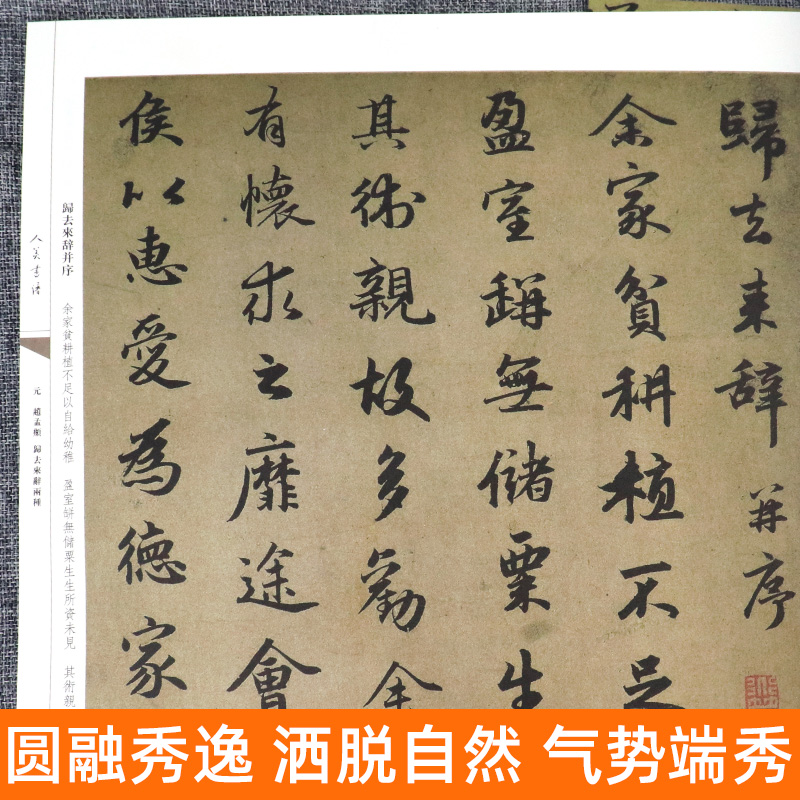 歸去来辞并序
余家貧耕植不足
盈室缾無儲粟生
其術親故多勸余
有懷求之靡途會
侯以惠愛為德家
歸去來辞并序
余家貧耕植不足以自給幼稚 盈室缾無儲粟生生所資未見 其術親
人美書譜
元 趙孟頫 歸去來辭兩種
圆融秀逸 洒脱自然 气势端秀